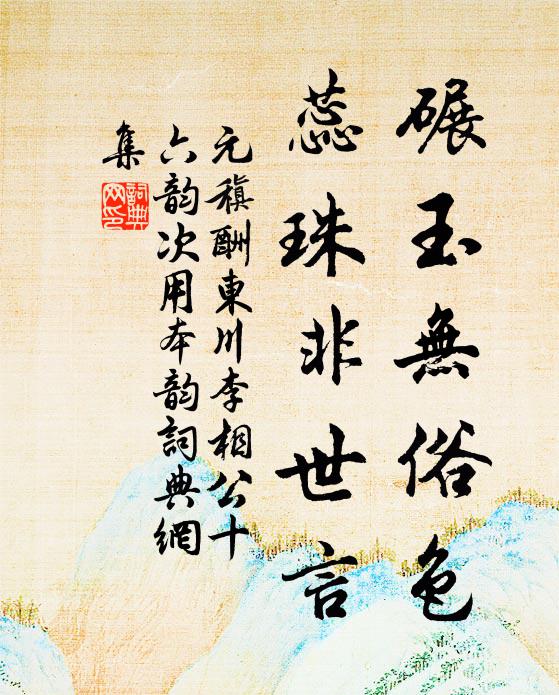 碾玉無俗色
蕊珠非世言
元稹酬東川李相公十
六韵次用本韵詞典網
集
詞典
网印